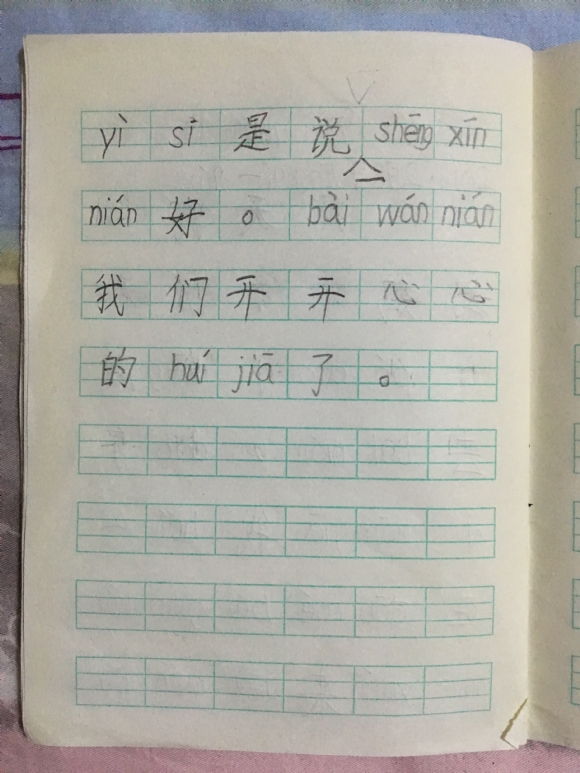 yì si 是 说 shēng xīn
nián 好 。 bài wán nián
我 们 开 开 心 心
的 huí jiā 了 。